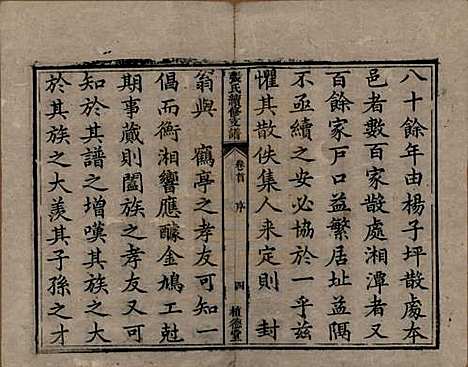 八十餘年由楊子坪散處本
邑者數百家散處湘潭者又
百餘家戶口益繁居址益隅
不亟續之安必協於一乎茲
懼其散佚集人來定則　封
張氏續修支譜
卷首　序
四　植德堂
翁與　鶴亭之孝友可知一
倡而衡湘響應醵金鳩工尅
期事蕆則闔族之孝友又可
知於其譜之增嘆其族之大
於其族之大羨其子孫之才